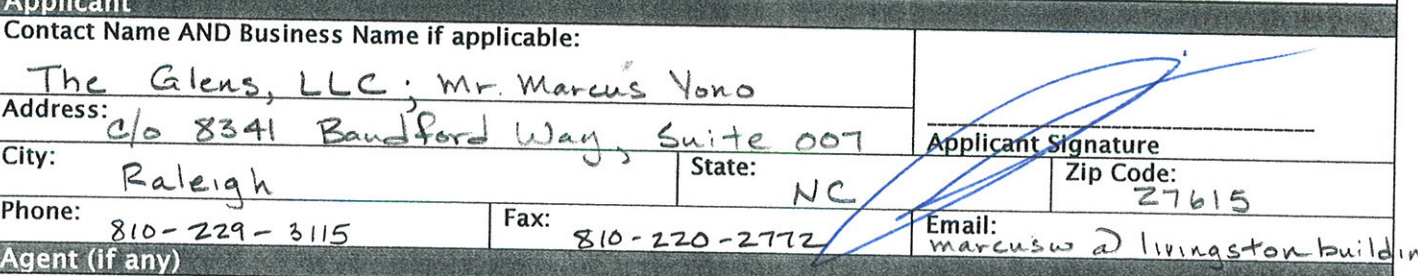 Applicant
Contact Name AND Business Name if applicable:
The Glens, LLC; Mr. Marcus Yono
Address: c/o 8341 Bandford Way, Suite 007
Applicant Signature
City: Raleigh State: NC Zip Code: 27615
Phone: 810-229-3115 Fax: 810-220-2772 Email: marcusw@livingstonbuildin
Agent (if any)